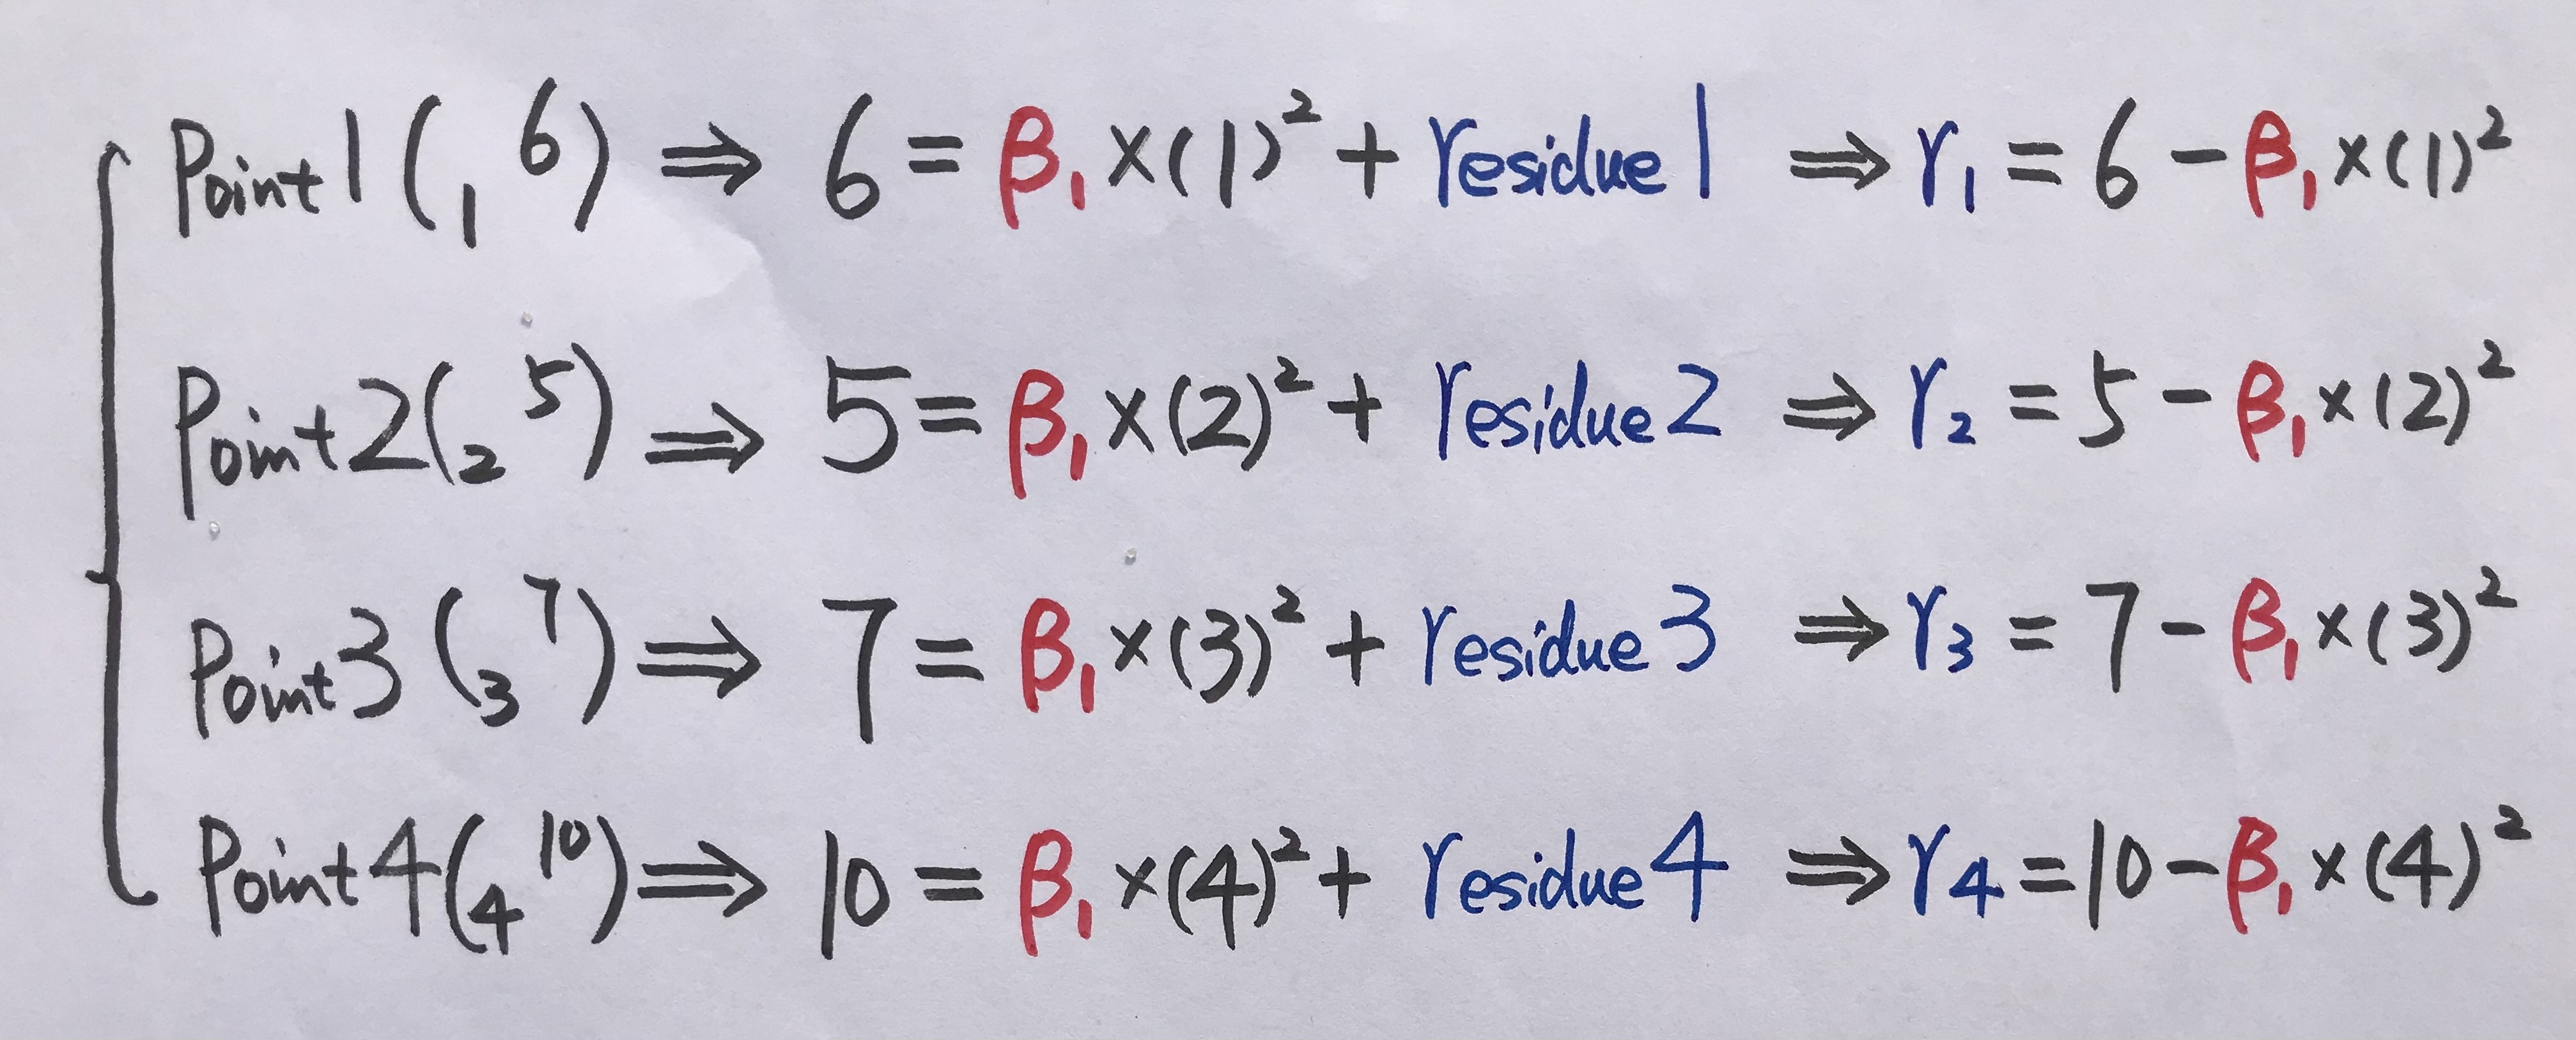 Point 1 (1, 6) ⇒ 6 = β₁ × (1)² + residue 1 ⇒ r₁ = 6 − β₁ × (1)²
Point 2 (2, 5) ⇒ 5 = β₁ × (2)² + residue 2 ⇒ r₂ = 5 − β₁ × (2)²
Point 3 (3, 7) ⇒ 7 = β₁ × (3)² + residue 3 ⇒ r₃ = 7 − β₁ × (3)²
Point 4 (4, 10) ⇒ 10 = β₁ × (4)² + residue 4 ⇒ r₄ = 10 − β₁ × (4)²